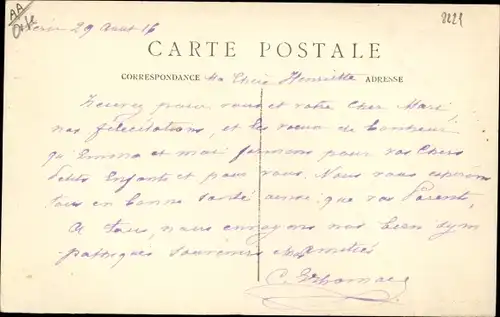 AA
Oise
2221
29 Août 16
CARTE POSTALE
CORRESPONDANCE Ma Chère Henriette ADRESSE
pour vous et votre Cher Mari
nos félicitations, et les vœux de bonheur
qu'Emma et moi formons pour vos Chers
Petits Enfants et pour vous. Nous vous espérons
tous en bonne santé ainsi que vos Parents,
A tous, nous envoyons nos bien sym
pathiques souvenirs amitiés
C.